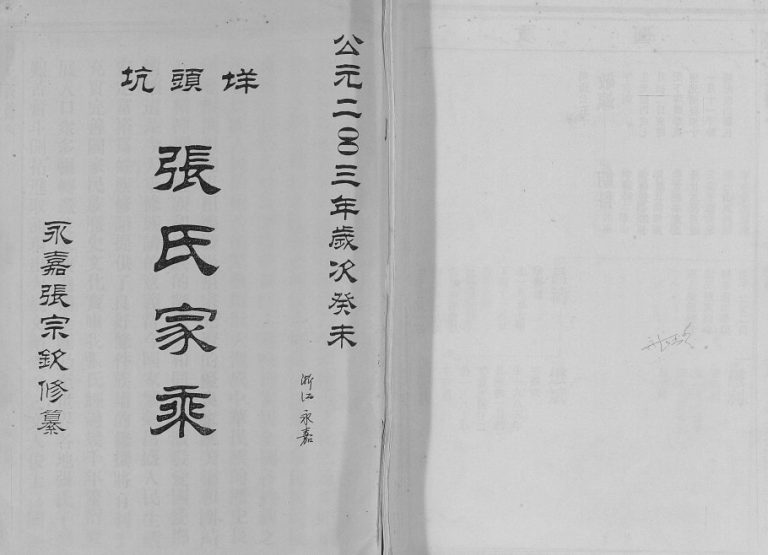 公元二〇〇三年歲次癸未
垟頭坑
張氏家乘
永嘉張宗欽修纂
浙江永嘉